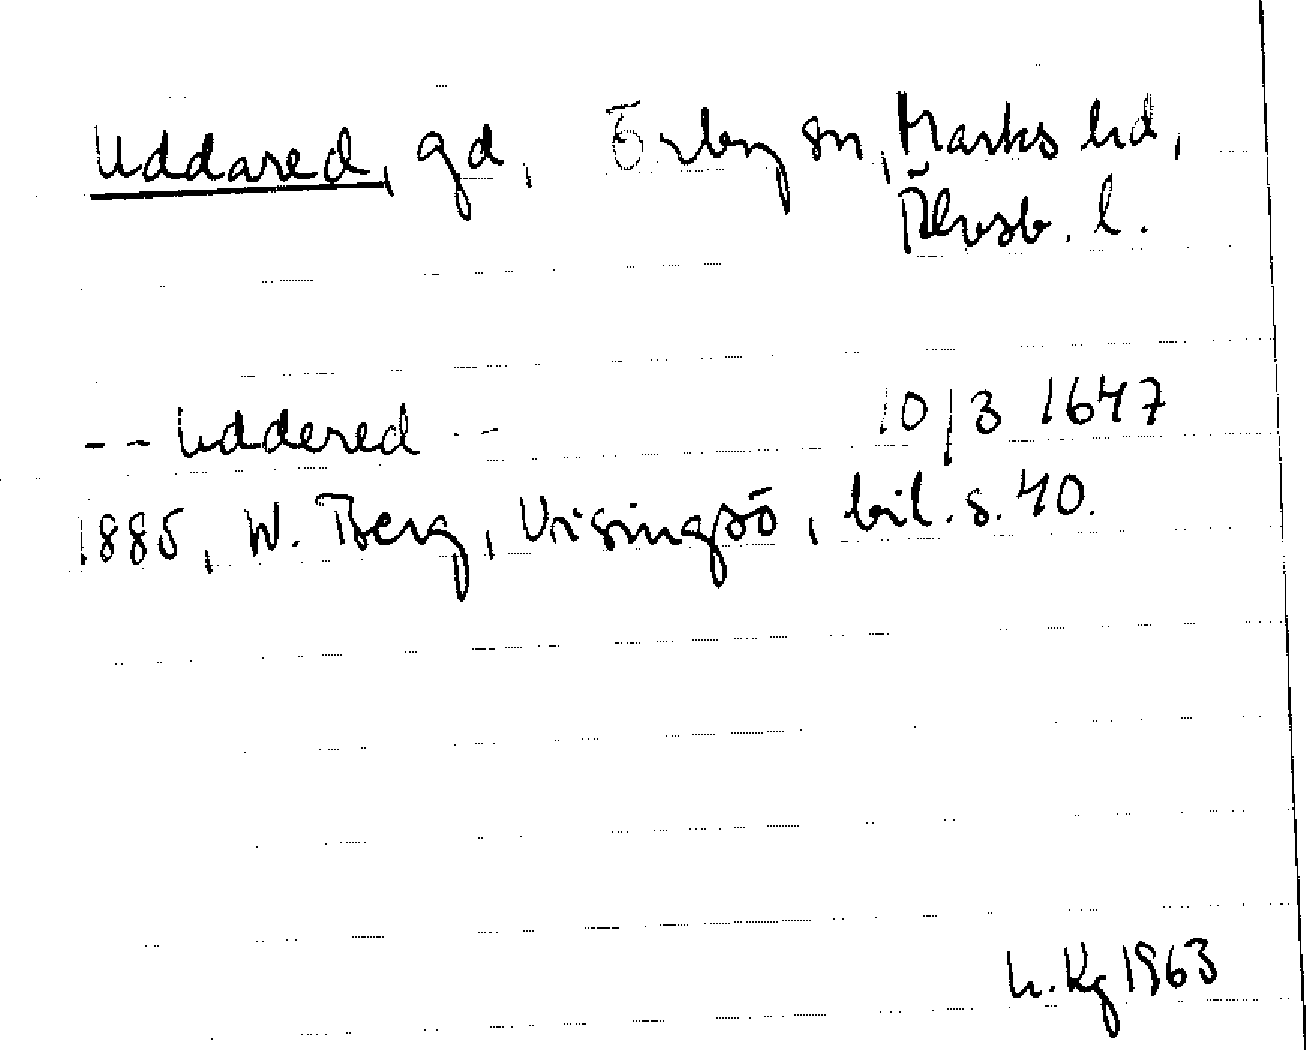 Uddared, gd, Örby sn, Marks hd,
Älvsb. l.
-- Uddered -- 10/3 1647
1885, W. Berg, Visingsö, bil. s. 40.
h. Kg 1963